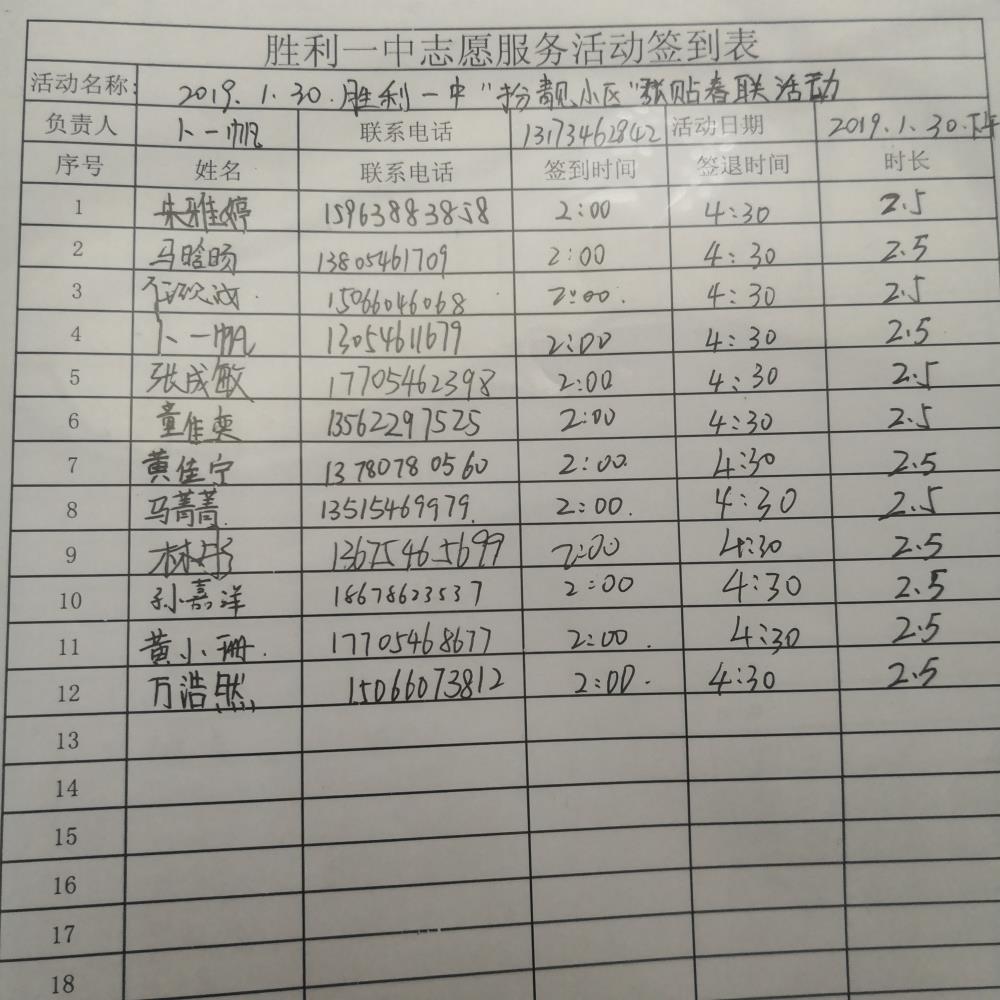 胜利一中志愿服务活动签到表
活动名称: 2019.1.30.胜利一中"扮靓小区"张贴春联活动
负责人 卜一帆 联系电话 13173462842 活动日期 2019.1.30.下午
序号 姓名 联系电话 签到时间 签退时间 时长
1 朱雅婷 15963883858 2:00 4:30 2.5
2 马晗旸 13805461709 2:00 4:30 2.5
3 15066046068 2:00. 4:30 2.5
4 卜一帆 13054611679 2:00 4:30 2.5
5 张成敏 17705462398 2:00 4:30 2.5
6 童佳奕 13562297525 2:00 4:30 2.5
7 黄佳宁 13780780560 2:00. 4:30 2.5
8 马菁菁. 13515469979. 2:00. 4:30 2.5
9 林 13675465699 2:00 4:30 2.5
10 孙嘉洋 18678623537 2:00 4:30 2.5
11 黄小珊. 17705468677 2:00. 4:30 2.5
12 万浩然 15066073812 2:00. 4:30 2.5
13
14
15
16
17
18